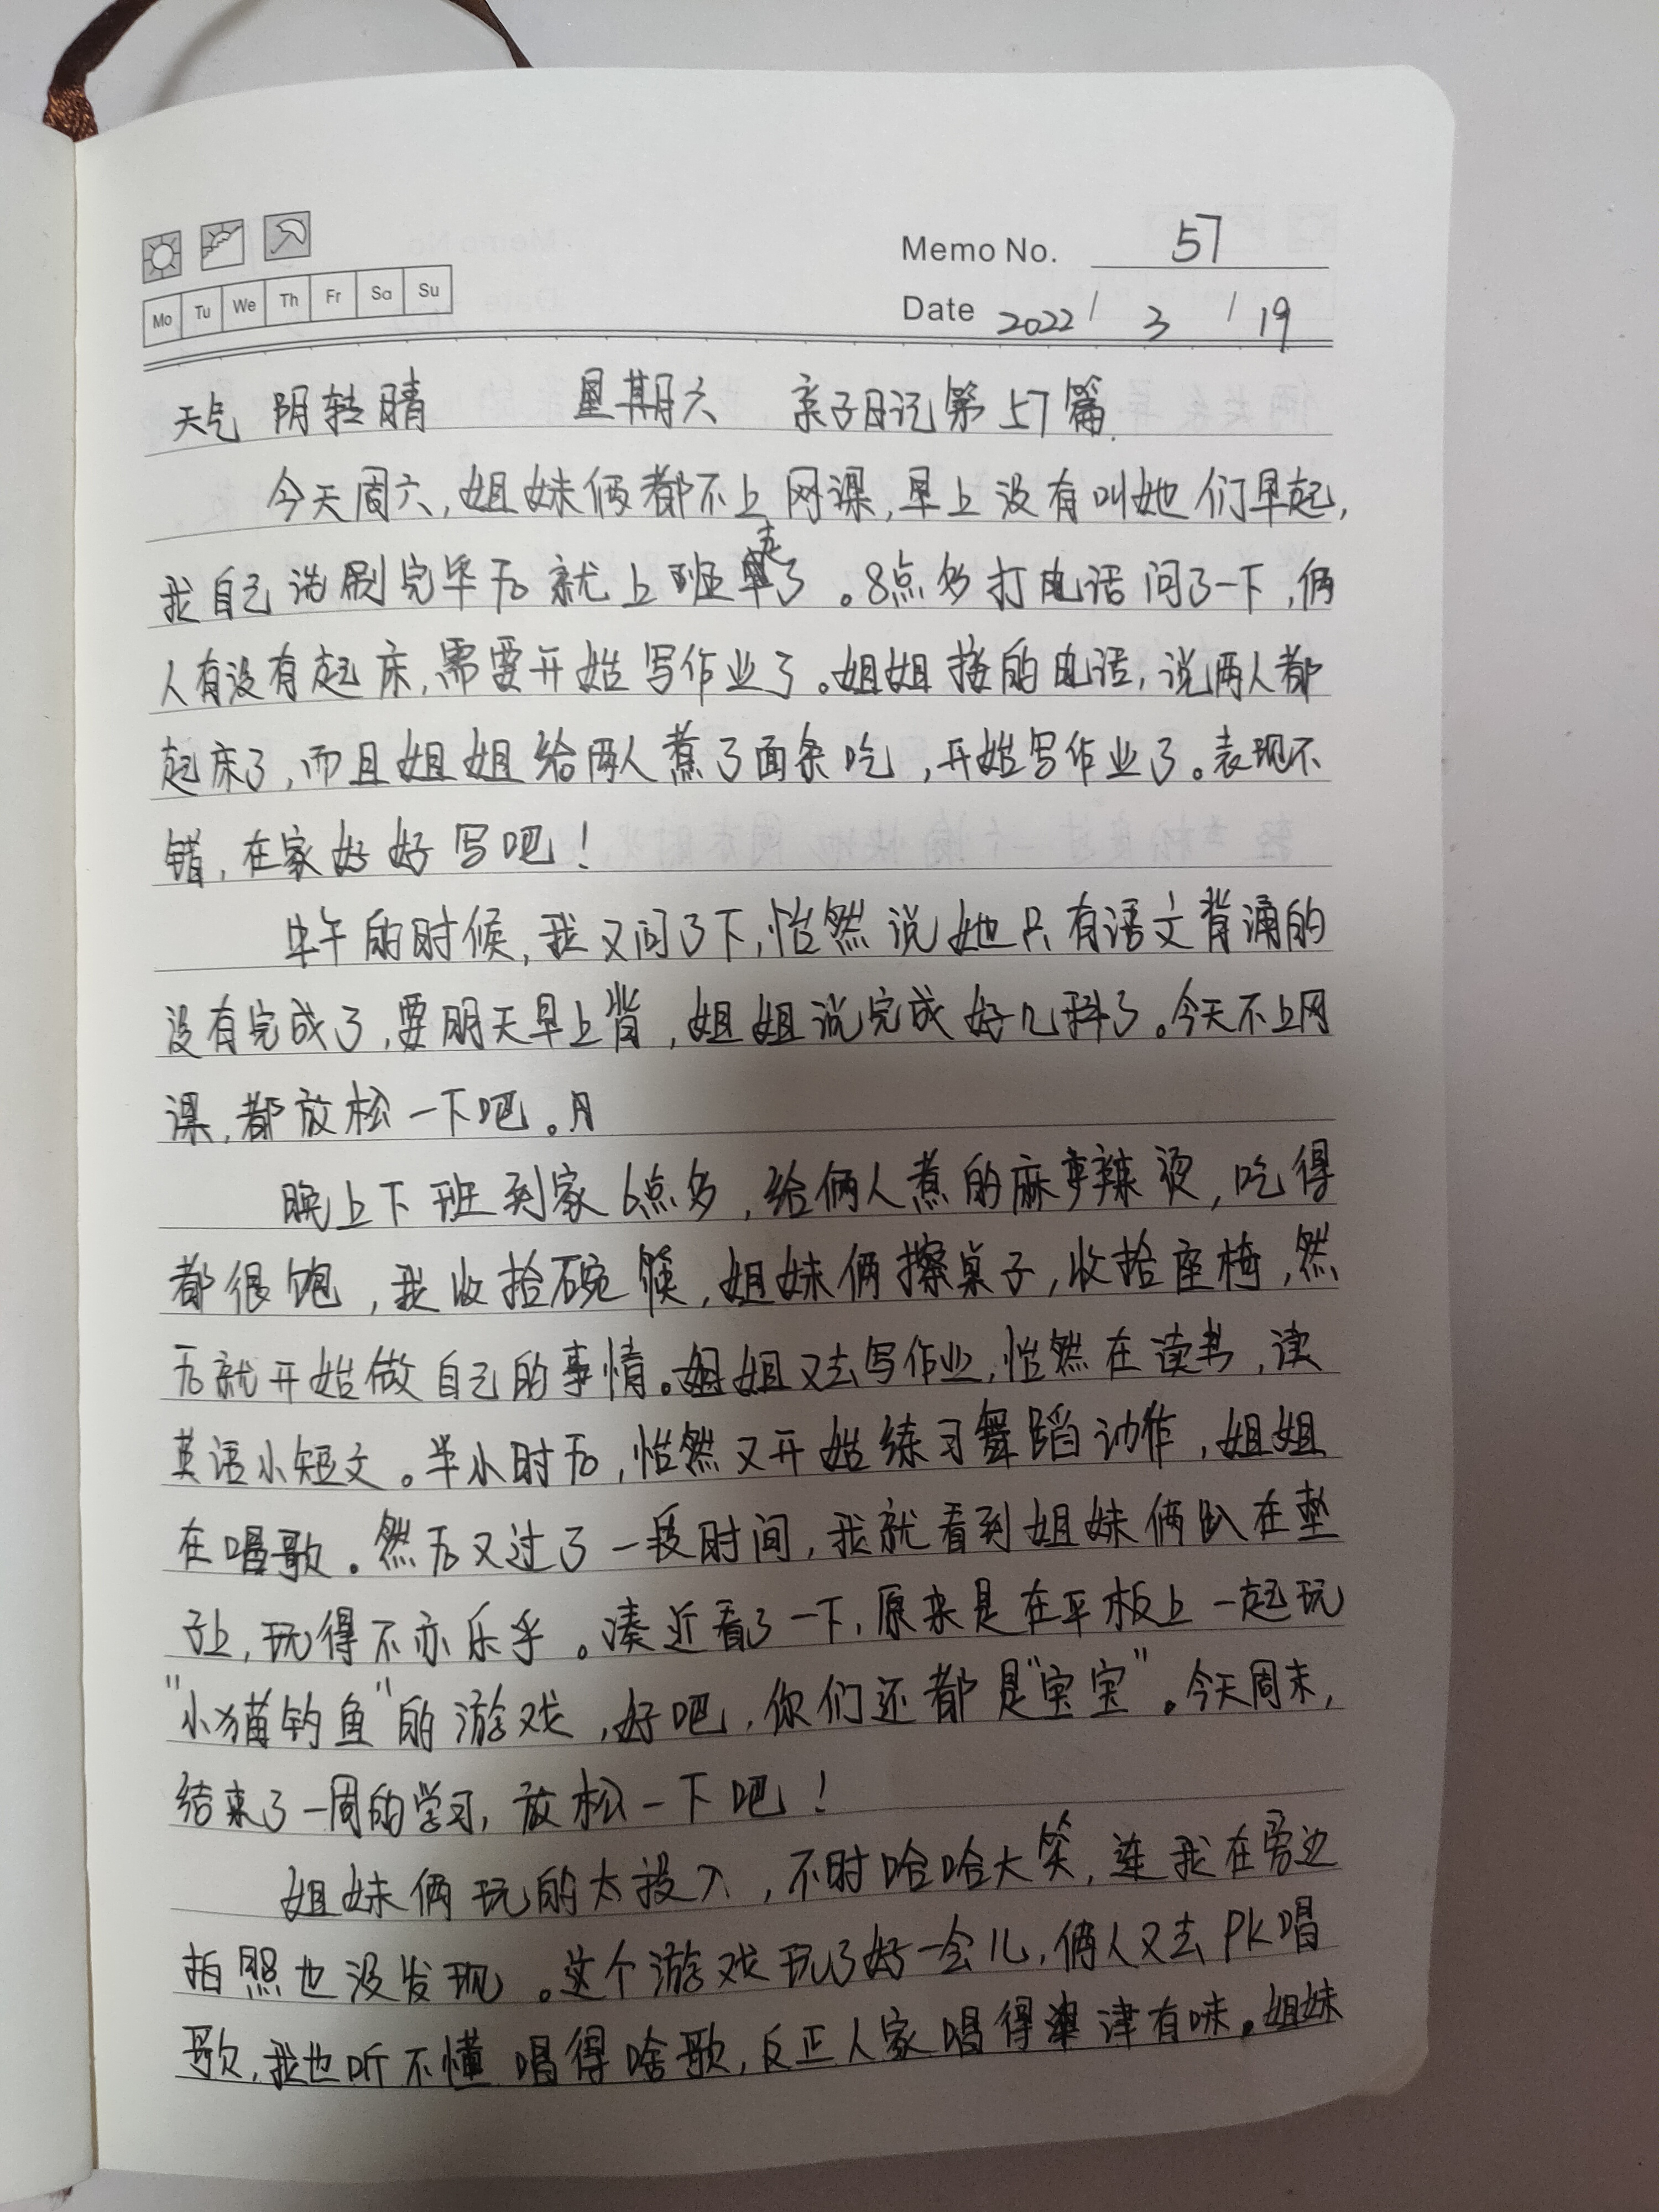 Memo No. 57
Mo Tu We Th Fr Sa Su
Date 2022 / 3 / 19
天气 阴转晴 星期六 亲子日记第57篇.
今天周六,姐妹俩都不上网课,早上没有叫她们早起,
我自己洗刷完毕后就上班走了。8点多打电话问了一下,俩
人有没有起床,需要开始写作业了。姐姐接的电话,说两人都
起床了,而且姐姐给两人煮了面条吃,开始写作业了。表现不
错,在家好好写吧!
中午的时候,我又问了下,怡然说她只有语文背诵的
没有完成了,要明天早上背,姐姐说完成好几科了。今天不上网
课,都放松一下吧。月
晚上下班到家6点多,给俩人煮的麻辣烫,吃得
都很饱,我收拾碗筷,姐妹俩擦桌子,收拾座椅,然
后就开始做自己的事情。姐姐又去写作业,怡然在读书,读
英语小短文。半小时后,怡然又开始练习舞蹈动作,姐姐
在唱歌。然后又过了一段时间,我就看到姐妹俩趴在垫
子上,玩得不亦乐乎。凑近看了一下,原来是在平板上一起玩
"小猫钓鱼"的游戏,好吧,你们还都是"宝宝"。今天周末,
结束了一周的学习,放松一下吧!
姐妹俩玩的太投入,不时哈哈大笑,连我在旁边
拍照也没发现。这个游戏玩了好一会儿,俩人又去PK唱
歌,我也听不懂唱得啥歌,反正人家唱得津津有味。姐妹